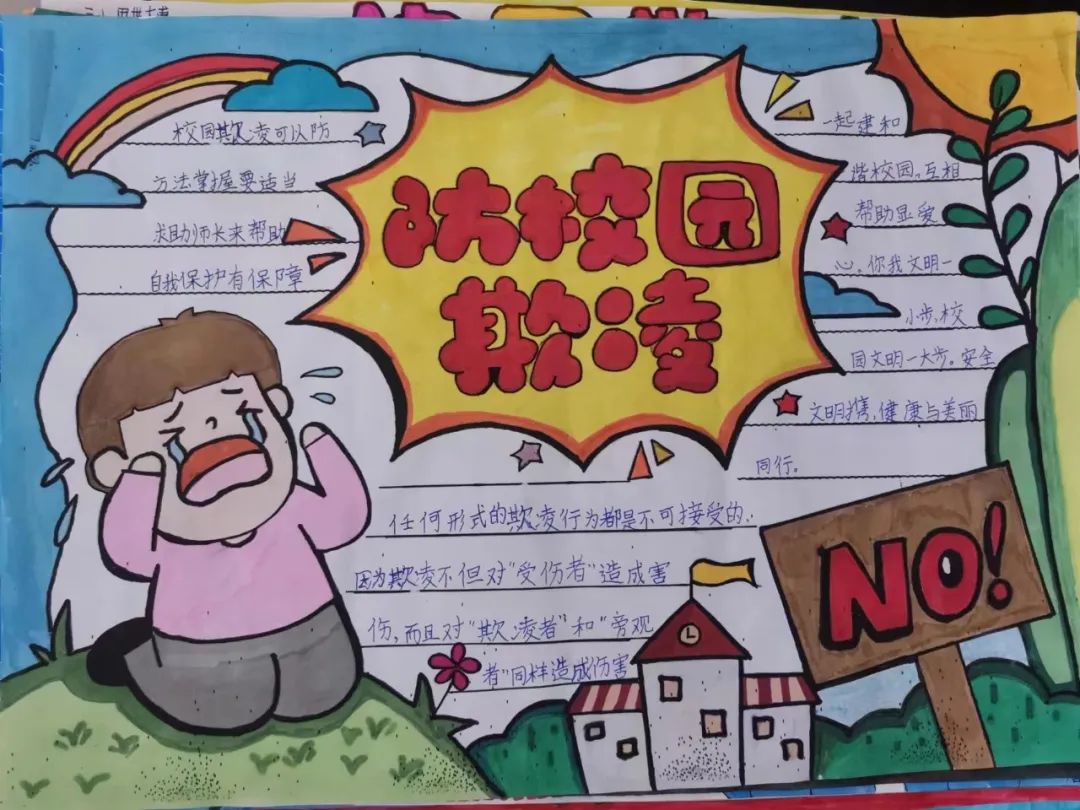 防校园
欺凌
校园欺凌可以防
方法掌握要适当
求助师长来帮助
自我保护有保障
一起建和
谐校园。互相
帮助显爱
心。你我文明一
小步,校
园文明一大步。安全
文明携,健康与美丽
同行。
任何形式的欺凌行为都是不可接受的.
因为欺凌不但对“受伤者”造成害
伤,而且对“欺凌者”和“旁观
者”同样造成伤害
NO!